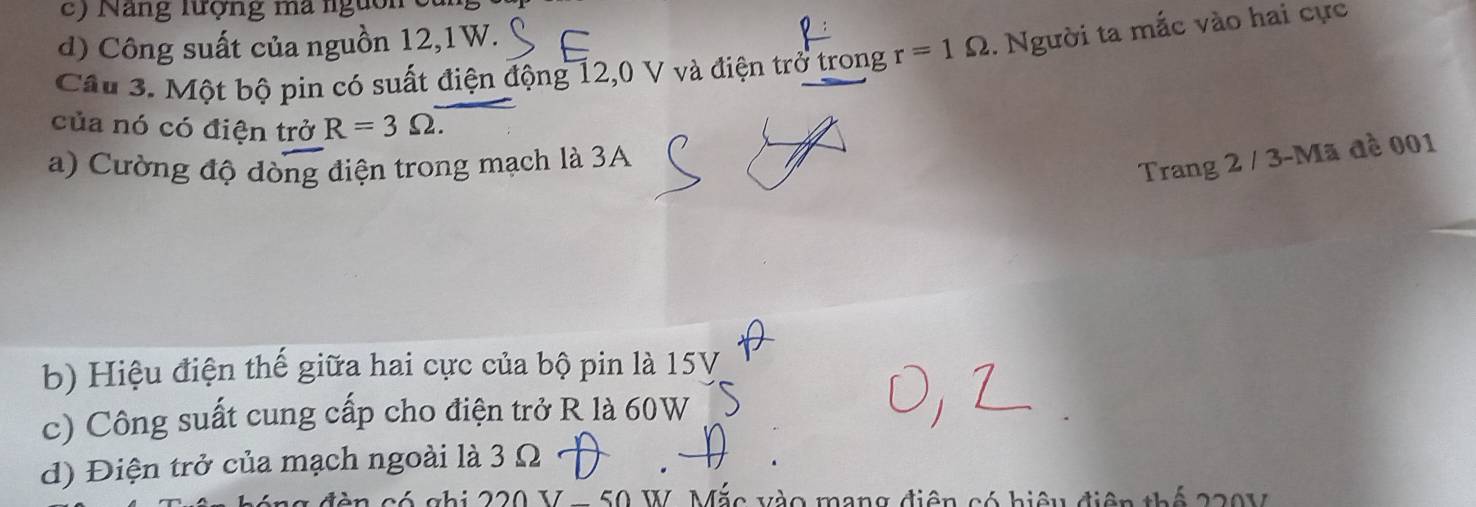 c) Năng lượng mà nguồn
d) Công suất của nguồn 12,1W. S E R:
Câu 3. Một bộ pin có suất điện động 12,0 V và điện trở trong r = 1 Ω. Người ta mắc vào hai cực
của nó có điện trở R = 3 Ω.
a) Cường độ dòng điện trong mạch là 3A S
Trang 2 / 3-Mã đề 001
b) Hiệu điện thế giữa hai cực của bộ pin là 15V Đ
c) Công suất cung cấp cho điện trở R là 60W S
0,2
d) Điện trở của mạch ngoài là 3 Ω Đ . Đ .
bóng đèn có ghi 220 V – 50 W. Mắc vào mạng điện có hiệu điện thế 220V